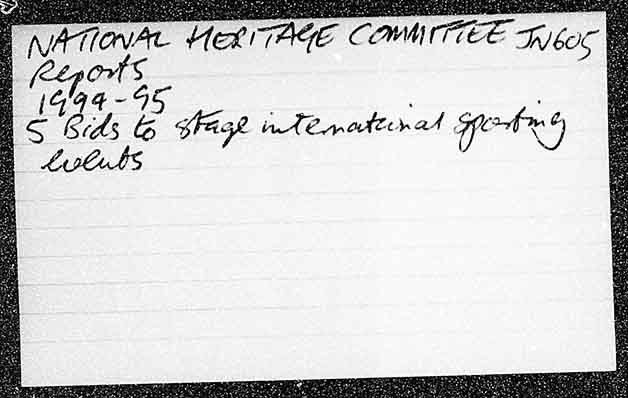 NATIONAL HERITAGE COMMITTEE JN605
Reports
1994-95
5 Bids to stage international sporting
Events